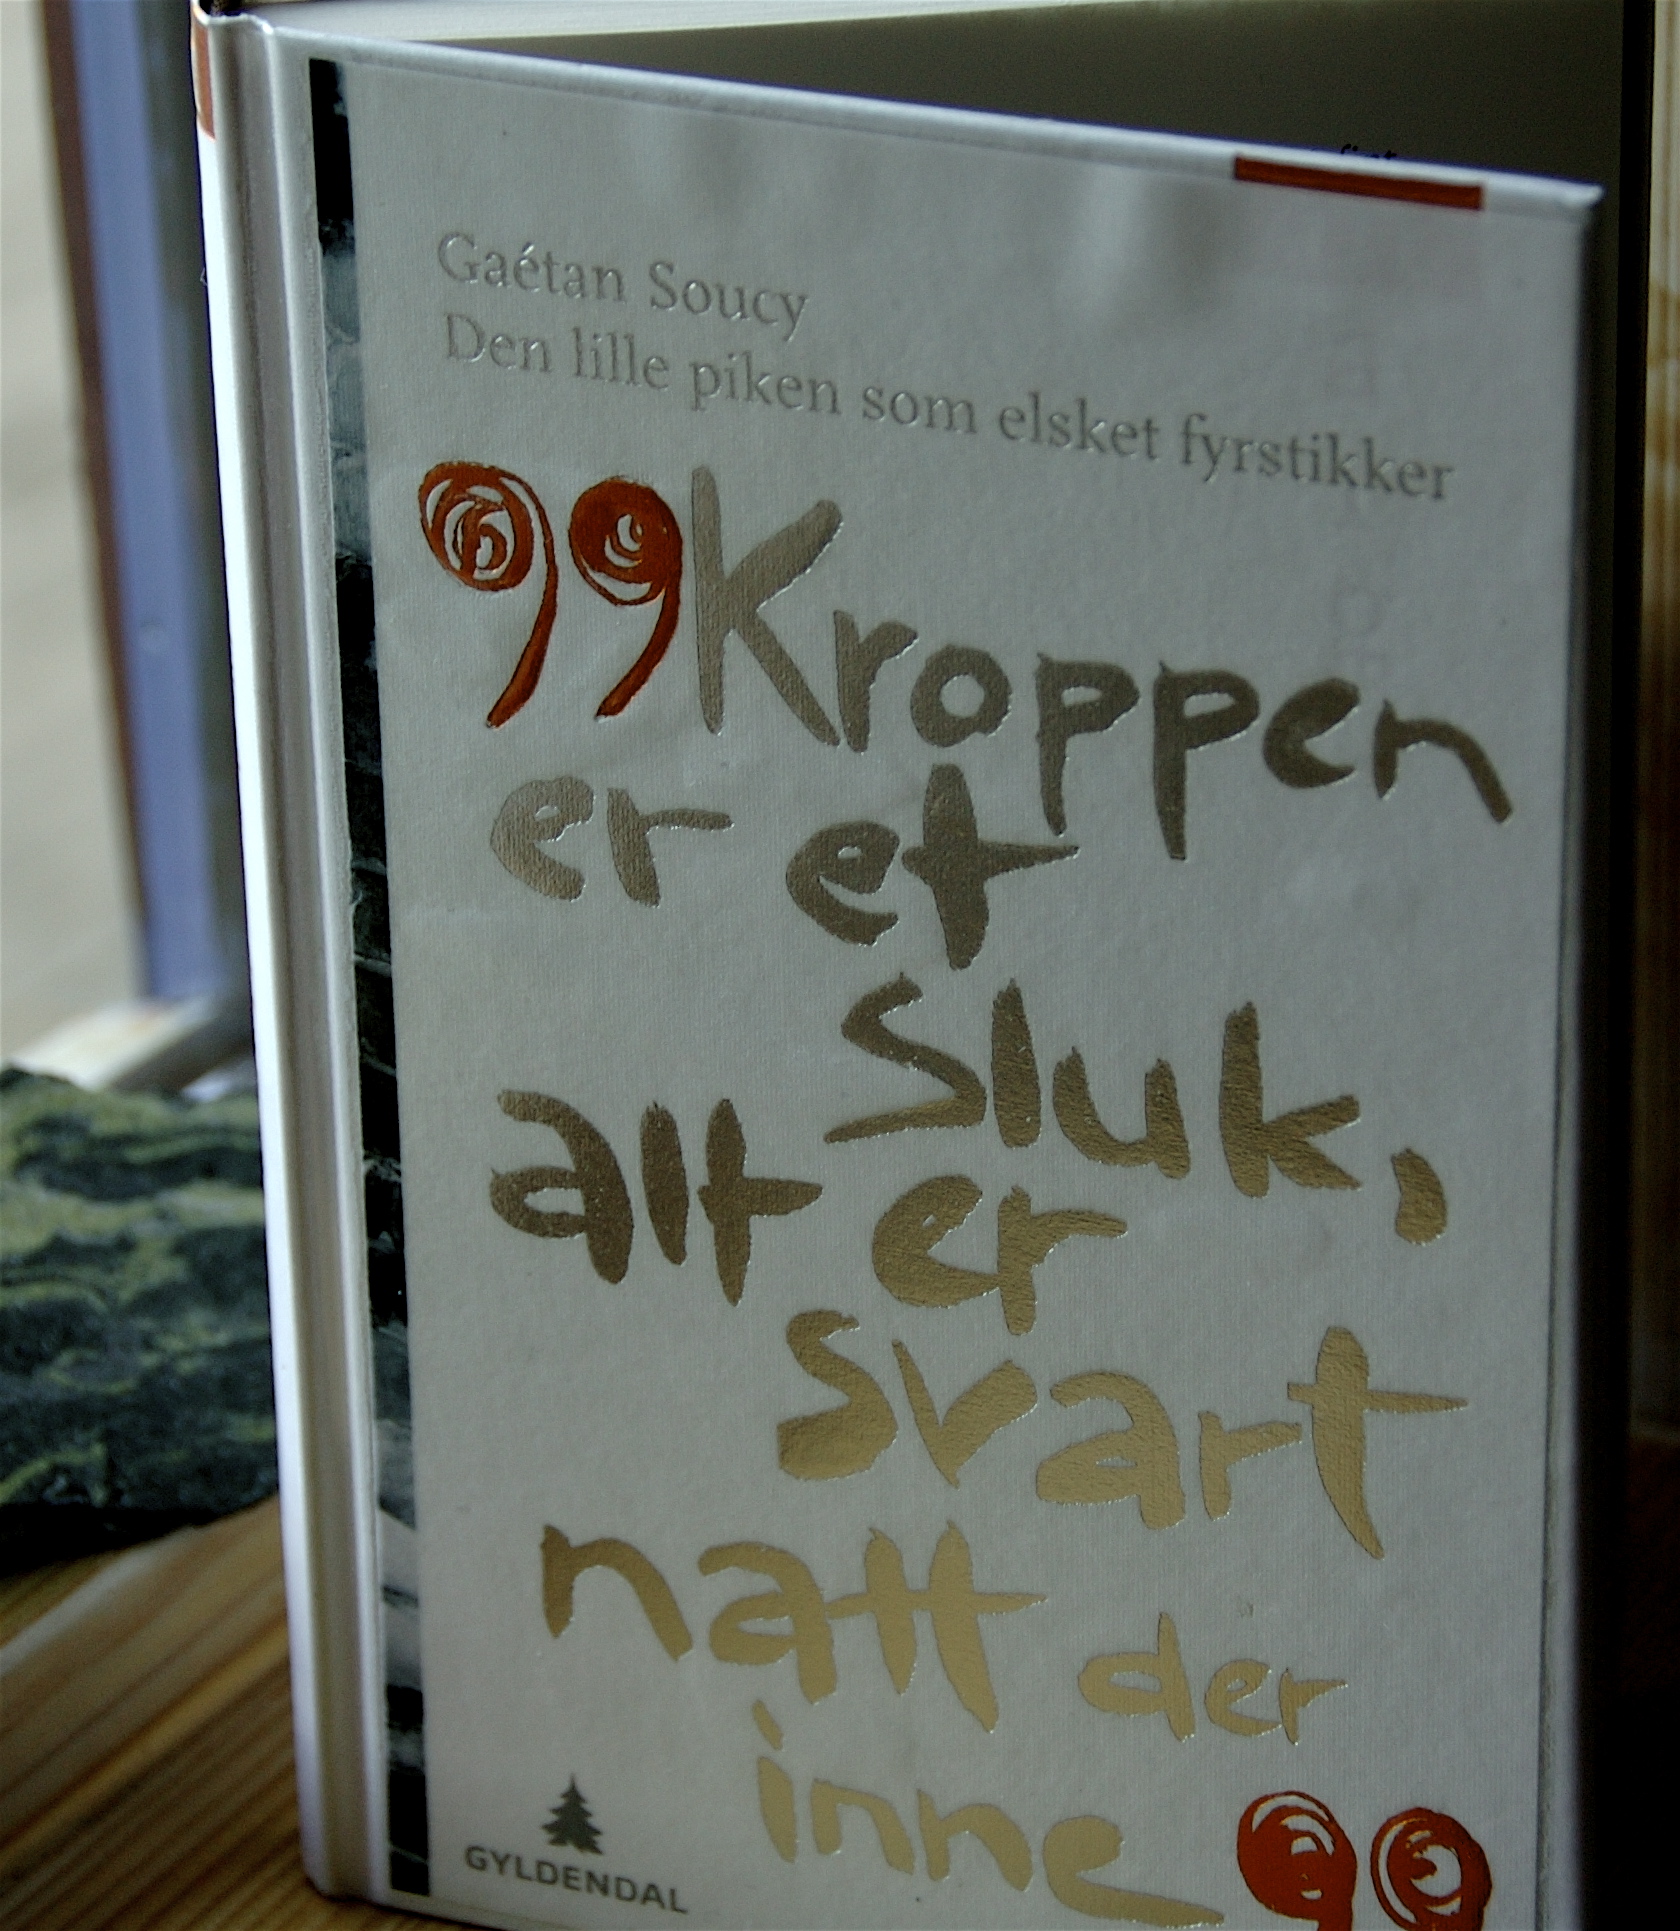 Gaétan Soucy
Den lille piken som elsket fyrstikker
”Kroppen
er et
sluk,
alt er
svart
natt der
inne”
GYLDENDAL